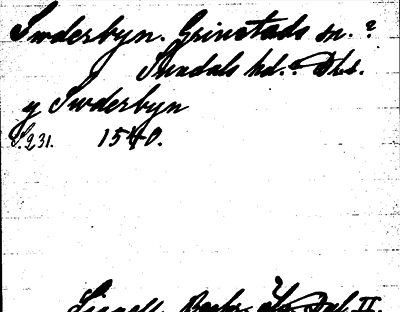 Swderbyn. Grinstads sn. ?
Sundals hd. Dls.
y Swderbyn
S. 231. 1540.
Lignell, Beskr. Dal II.